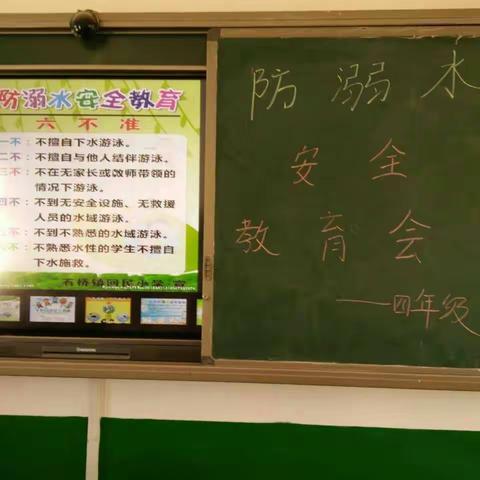 防溺水安全教育
六不准
一不：不擅自下水游泳。
二不：不擅自与他人结伴游泳。
三不：不在无家长或教师带领的
情况下游泳。
四不：不到无安全设施、无救援
人员的水域游泳。
五不：不到不熟悉的水域游泳。
六不：不熟悉水性的学生不擅自
下水施救。
石桥镇回民小学 宣
防溺水
安全
教育会
——四年级